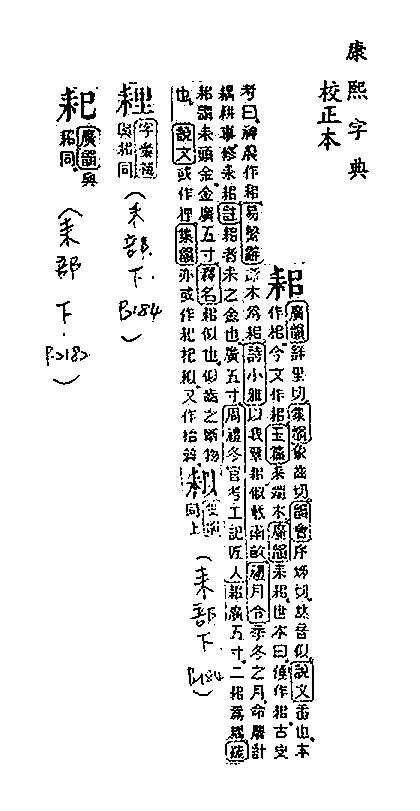 康熙字典
校正本
耜
廣韻 詳里切 集韻 象齒切 韻會 序姊切 𠀤音似 說文 臿也 本
作梠 今文作耜 玉篇 耒端木 廣韻 耒耜 世本曰 倕作耜 古史
考曰 神農作耜 易繫辭 斲木爲耜 詩小雅 以我覃耜 俶載南畝 禮月令 季冬之月 命農計
耦耕事 修耒耜 註 耜者 耒之金也 廣五寸 周禮冬官考工記 匠人 耜廣五寸 二耜爲耦 疏
耜謂耒頭金 金廣五寸 釋名 耜 似也 似齒之斷物
也 說文 或作梩 集韻 亦或作
同上
(耒部下 P184)
字彙補
與耜同
(耒部下 P184)
廣韻 與
耜同
(耒部下 P2182)